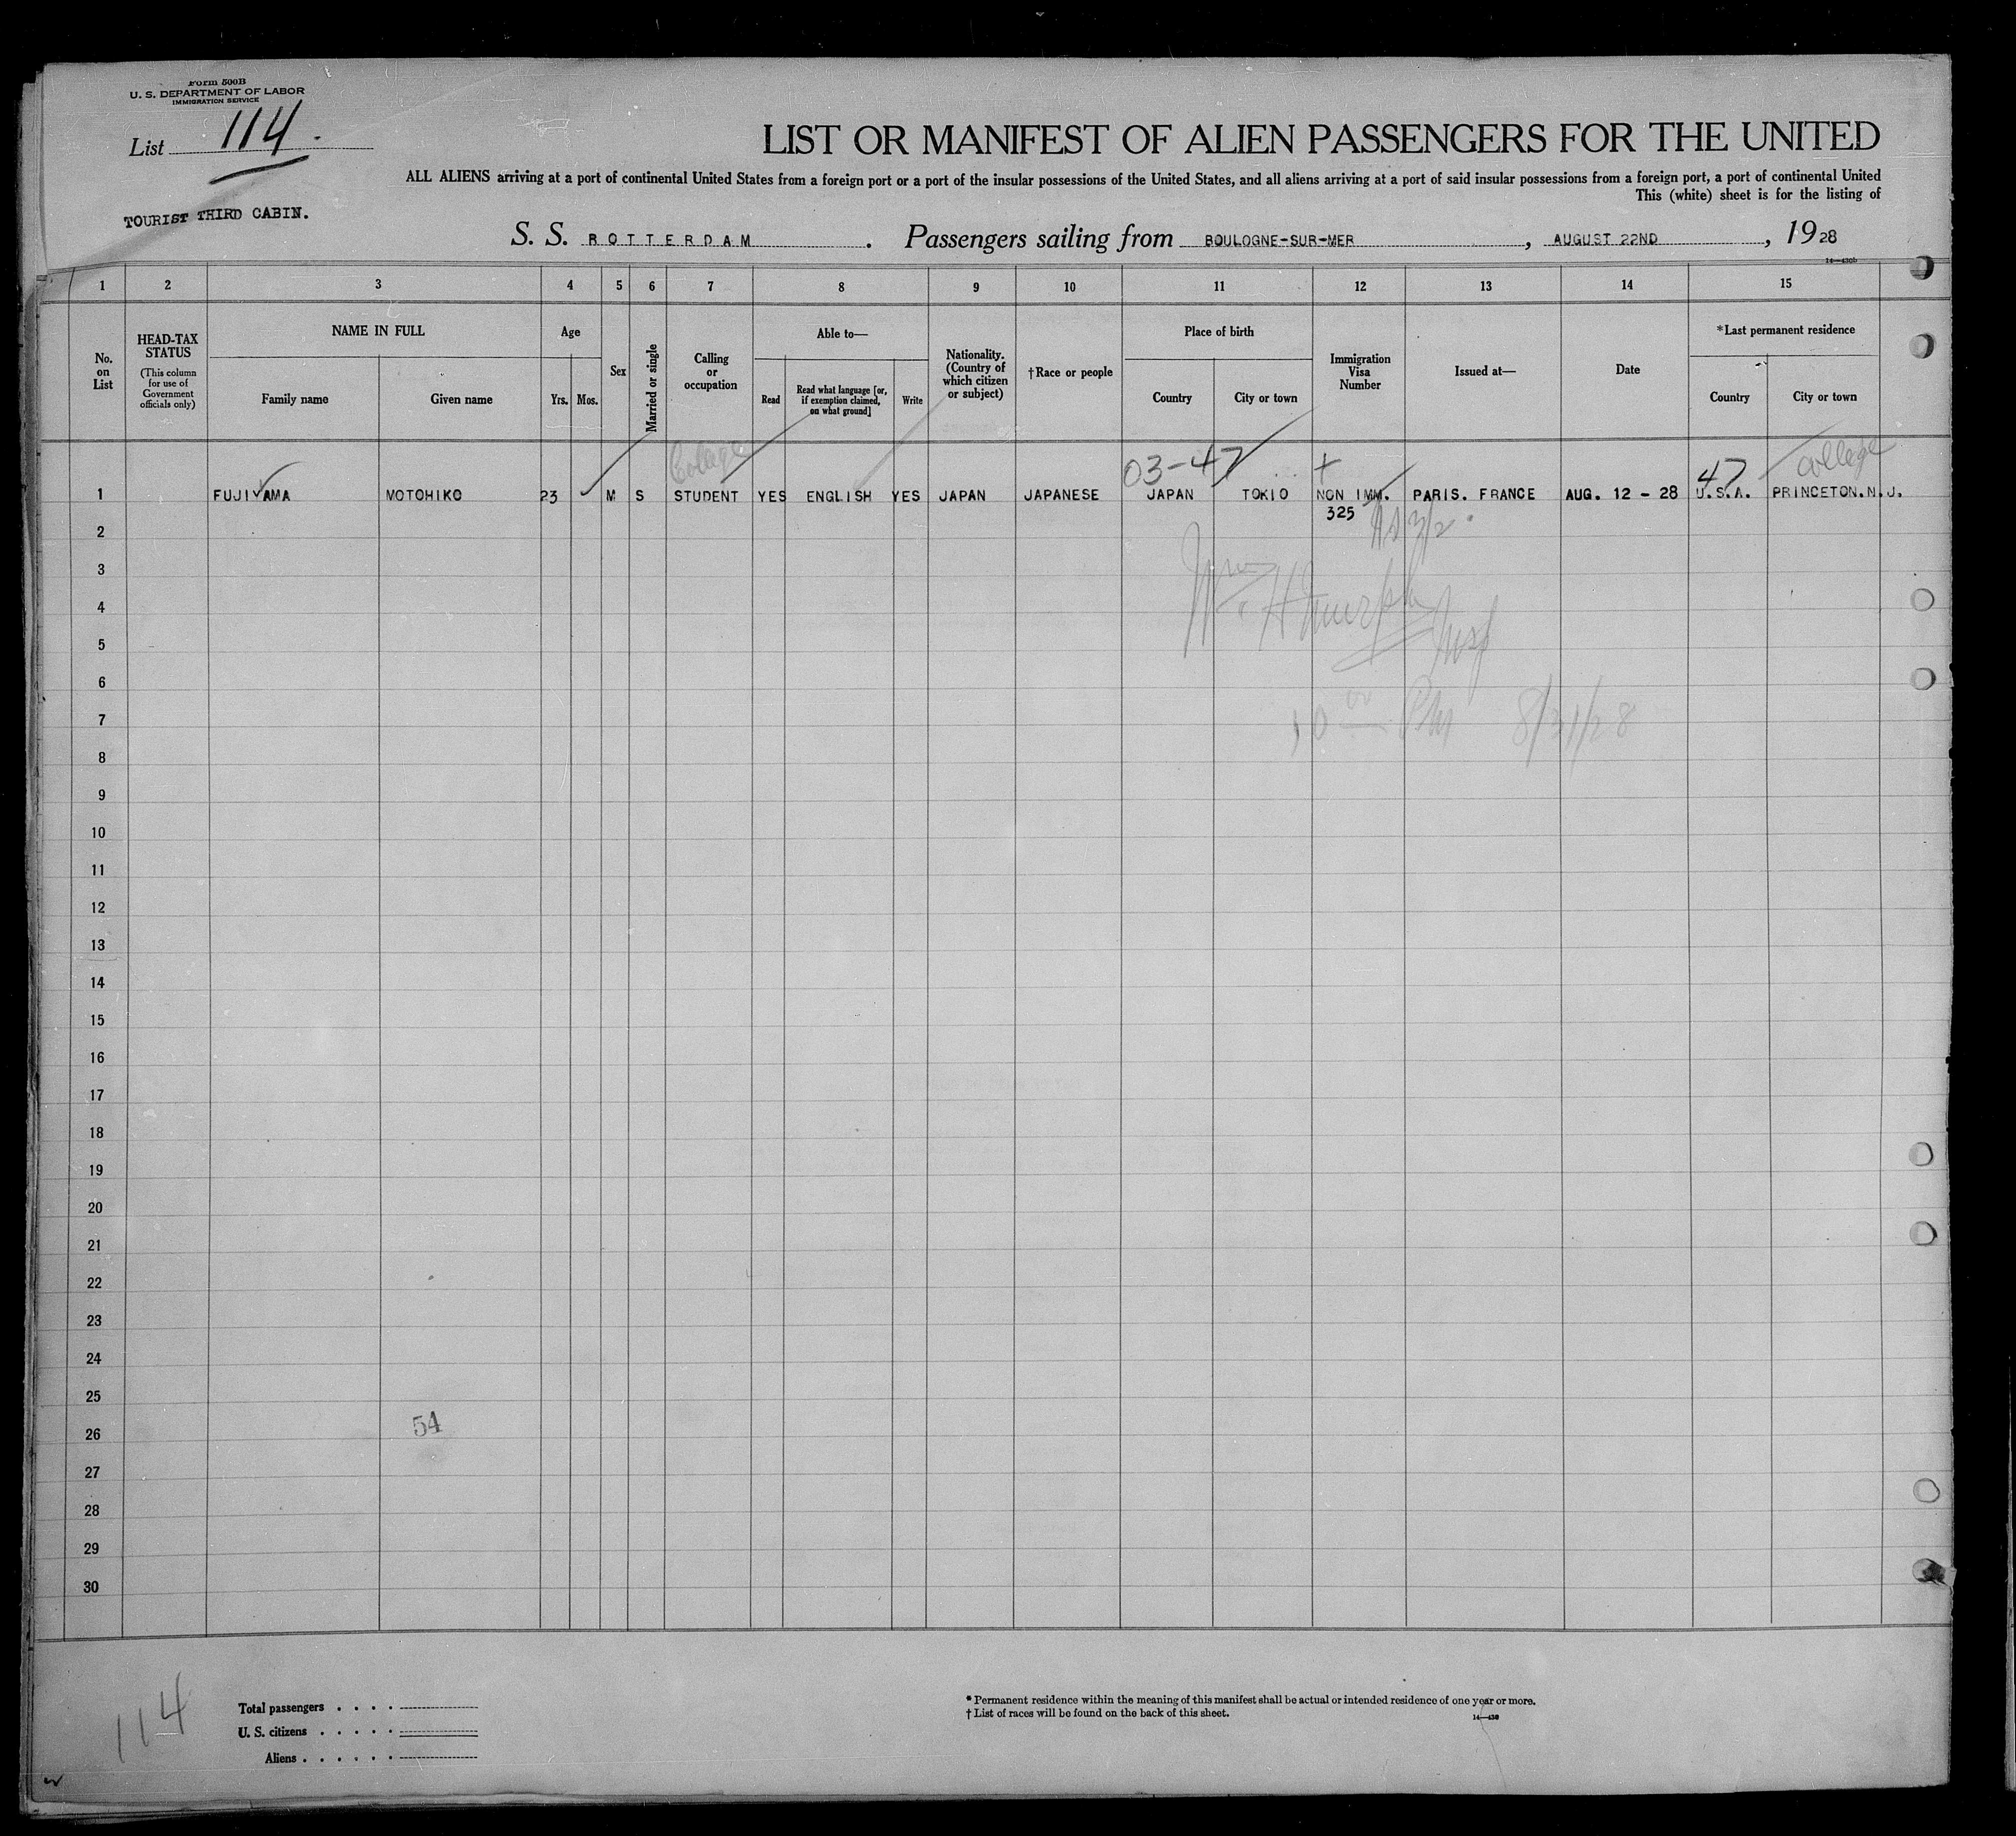 Form 500B
U. S. DEPARTMENT OF LABOR
IMMIGRATION SERVICE
List 114.
TOURIST THIRD CABIN.
LIST OR MANIFEST OF ALIEN PASSENGERS FOR THE UNITED
ALL ALIENS arriving at a port of continental United States from a foreign port or a port of the insular possessions of the United States, and all aliens arriving at a port of said insular possessions from a foreign port, a port of continental United
This (white) sheet is for the listing of
S. S. ROTTERDAM. Passengers sailing from BOULOGNE-SUR-MER, AUGUST 22ND, 1928
14—430b
1 2 3 4 5 6 7 8 9 10 11 12 13 14 15
No. on List
HEAD-TAX STATUS
(This column for use of Government officials only)
NAME IN FULL
Family name
Given name
Age
Yrs.
Mos.
Sex
Married or single
Calling or occupation
Able to—
Read
Read what language [or, if exemption claimed, on what ground]
Write
Nationality. (Country of which citizen or subject)
†Race or people
Place of birth
Country
City or town
Immigration Visa Number
Issued at—
Date
*Last permanent residence
Country
City or town
College 03-47 + 47 College
1 FUJIYAMA MOTOHIKO 23 M S STUDENT YES ENGLISH YES JAPAN JAPANESE JAPAN TOKIO NON IMM. PARIS. FRANCE AUG. 12 - 28 U.S.A. PRINCETON.N.J.
325
2
3
4
Wm. H Murphy
5
Insp
6
7
10 00 PM 8/31/28
8
9
10
11
12
13
14
15
16
17
18
19
20
21
22
23
24
25
26
54
27
28
29
30
114
Total passengers . . . .
U. S. citizens . . . . .
Aliens . . . . . .
* Permanent residence within the meaning of this manifest shall be actual or intended residence of one year or more.
† List of races will be found on the back of this sheet.
14—430